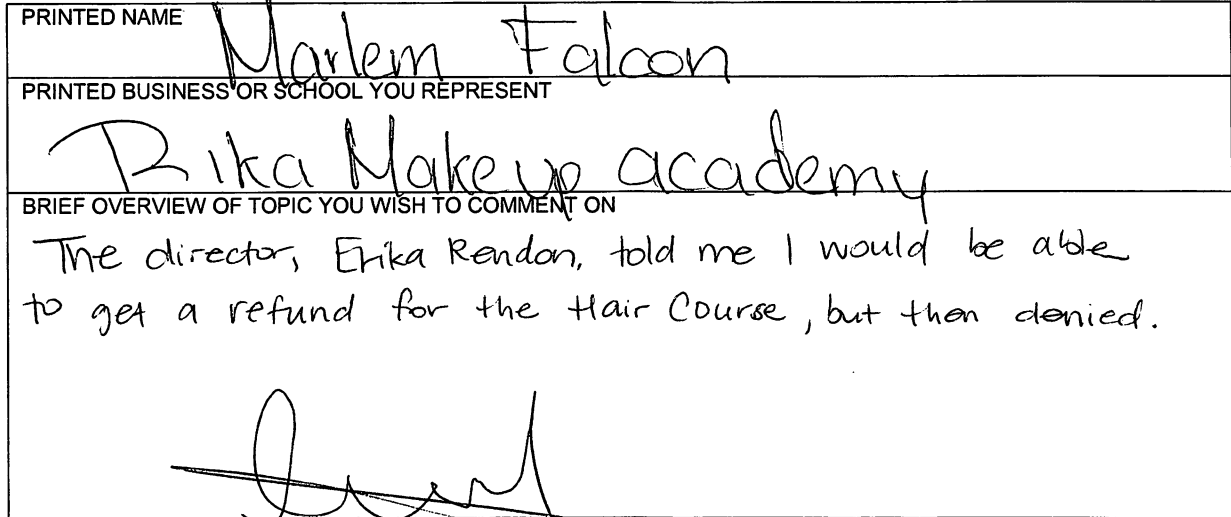 PRINTED NAME
Marlem Falcon
PRINTED BUSINESS OR SCHOOL YOU REPRESENT
Rika Makeup academy
BRIEF OVERVIEW OF TOPIC YOU WISH TO COMMENT ON
The director, Erika Rendon, told me I would be able
to get a refund for the Hair Course, but then denied.